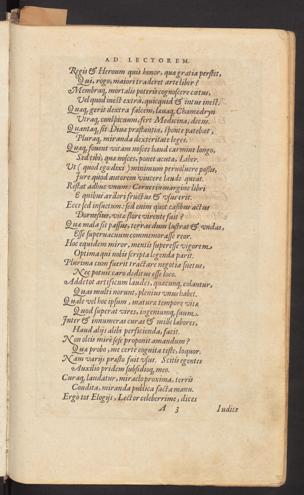 AD LECTOREM.
Regis & Heroum quis honor, qua gratia perstet,
Qui, rogo, maiori traderet arte liber?
Membraq, mortalis poteris cognoscere cætus,
Vel quod inest extra, quicquid & intus inest.
Quaq, gerit dextra falcem, lauaq, Chamædryn
Vtraq, conspicuum, fert Medicina, decus.
Quantaq, sit Diuæ præstantia, si ponè patebat,
Pluraq, miranda dexteritate leget.
Quaq, fouent vitam nosces haud carmine longo,
Sed tibi, qua nosces, ponet acuta, Liber.
Vt (quod ego dixi) minimum peruoluere possis,
Iure quod autorem vincere laude queat.
Restat adhuc vnum: Cernes in margine libri
E quibus ardori fructus & vsus erit.
Ecce sed infectum: sed enim quot casibus actus
Dornesius, vita flore virente fuit?
Qua mala sit passus, terras dum lustrat & vndas,
Esse superuacuum commemorasse reor.
Hoc equidem miror, mentis superesse vigorem
Optima qui nobis scripta legenda parit.
Plurima cum fuerit tractare negotia suetus,
Nec potuit caro deditus esse loco.
Addetot artificum laudes, quæcunq, colantur,
Quas multi norunt, plenius vnus habet.
Quale vel hoc ipsum, matura tempore vita
Quod superat vires, ingeniumq, suum.
Inter & innumeras curas & mille labores,
Haud alijs alibi perficienda, facit.
Non oleis mirè sese proponit amandum?
Qua probo, me certè cognita teste, loquor.
Nam varijs præsto fuit vsque. Sitientes
Auxilio pridem subsidioq, meo.
Curaq, laudatur, miraclo proxima, terris
Condita, miranda publica facta manu.
Ergò tot Elogijs, Lector celeberrime, dices
A 3 Iudice